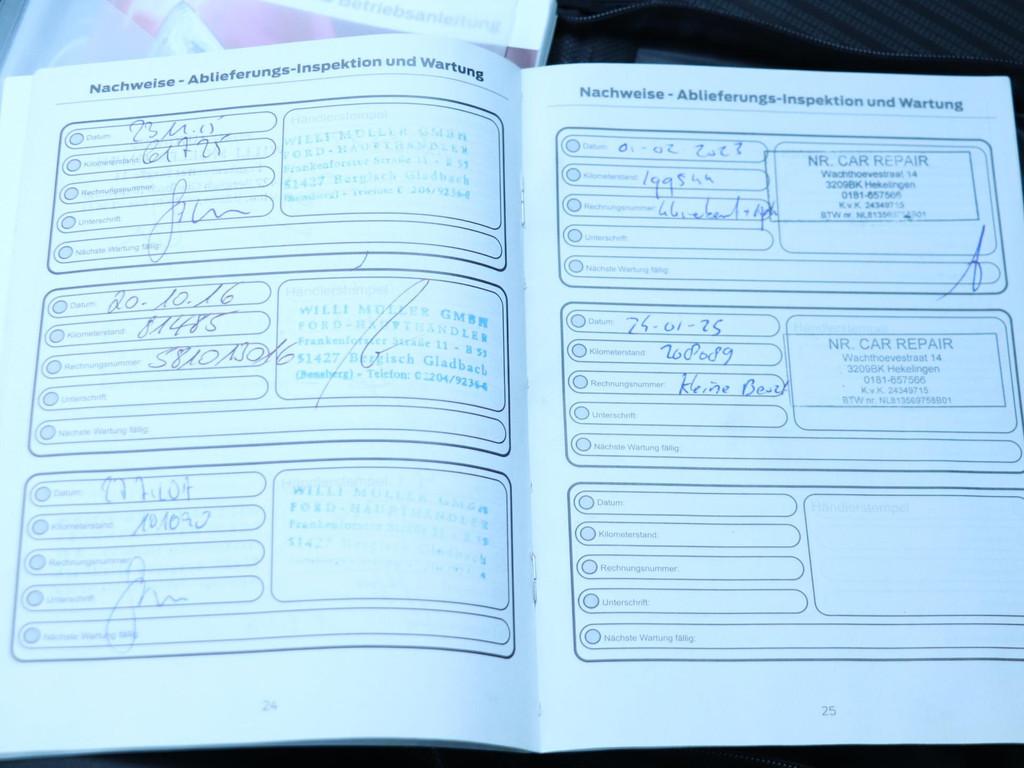 Betriebsanleitung
Nachweise - Ablieferungs-Inspektion und Wartung
Datum: 23.11.15
Kilometerstand: 61725
Rechnungsnummer:
Unterschrift:
Nächste Wartung fällig:
Händlerstempel
WILLI MÜLLER GMBH
FORD-HAUPTHÄNDLER
Frankenforster Straße 11 - B 55
51427 Bergisch Gladbach
(Bensberg) - Telefon: 0 204/9236-0
Datum: 20.10.16
Kilometerstand: 81485
Rechnungsnummer: 581013016
Unterschrift:
Nächste Wartung fällig:
Händlerstempel
WILLI MÜLLER GMBH
FORD-HAUPTHÄNDLER
Frankenforster Straße 11 - B 55
51427 Bergisch Gladbach
(Bensberg) - Telefon: 0 2204/9236-0
Datum:
Kilometerstand: 101090
Rechnungsnummer:
Unterschrift:
Nächste Wartung fällig:
Händlerstempel
WILLI MÜLLER GMBH
FORD-HAUPTHÄNDLER
Frankenforster Straße 11 - B 55
51427 Bergisch Gladbach
24
Nachweise - Ablieferungs-Inspektion und Wartung
Datum: 01-02 2023
Kilometerstand: 199544
Rechnungsnummer:
Unterschrift:
Nächste Wartung fällig:
NR. CAR REPAIR
Wachthoevestraat 14
3209BK Hekelingen
0181-657566
K.v.K. 24349715
BTW nr. NL813569758B01
Datum: 24-01-25
Kilometerstand: 208089
Rechnungsnummer: kleine Beurt
Unterschrift:
Nächste Wartung fällig:
Händlerstempel
NR. CAR REPAIR
Wachthoevestraat 14
3209BK Hekelingen
0181-657566
K.v.K. 24349715
BTW nr. NL813569758B01
Datum:
Kilometerstand:
Rechnungsnummer:
Unterschrift:
Nächste Wartung fällig:
Händlerstempel
25